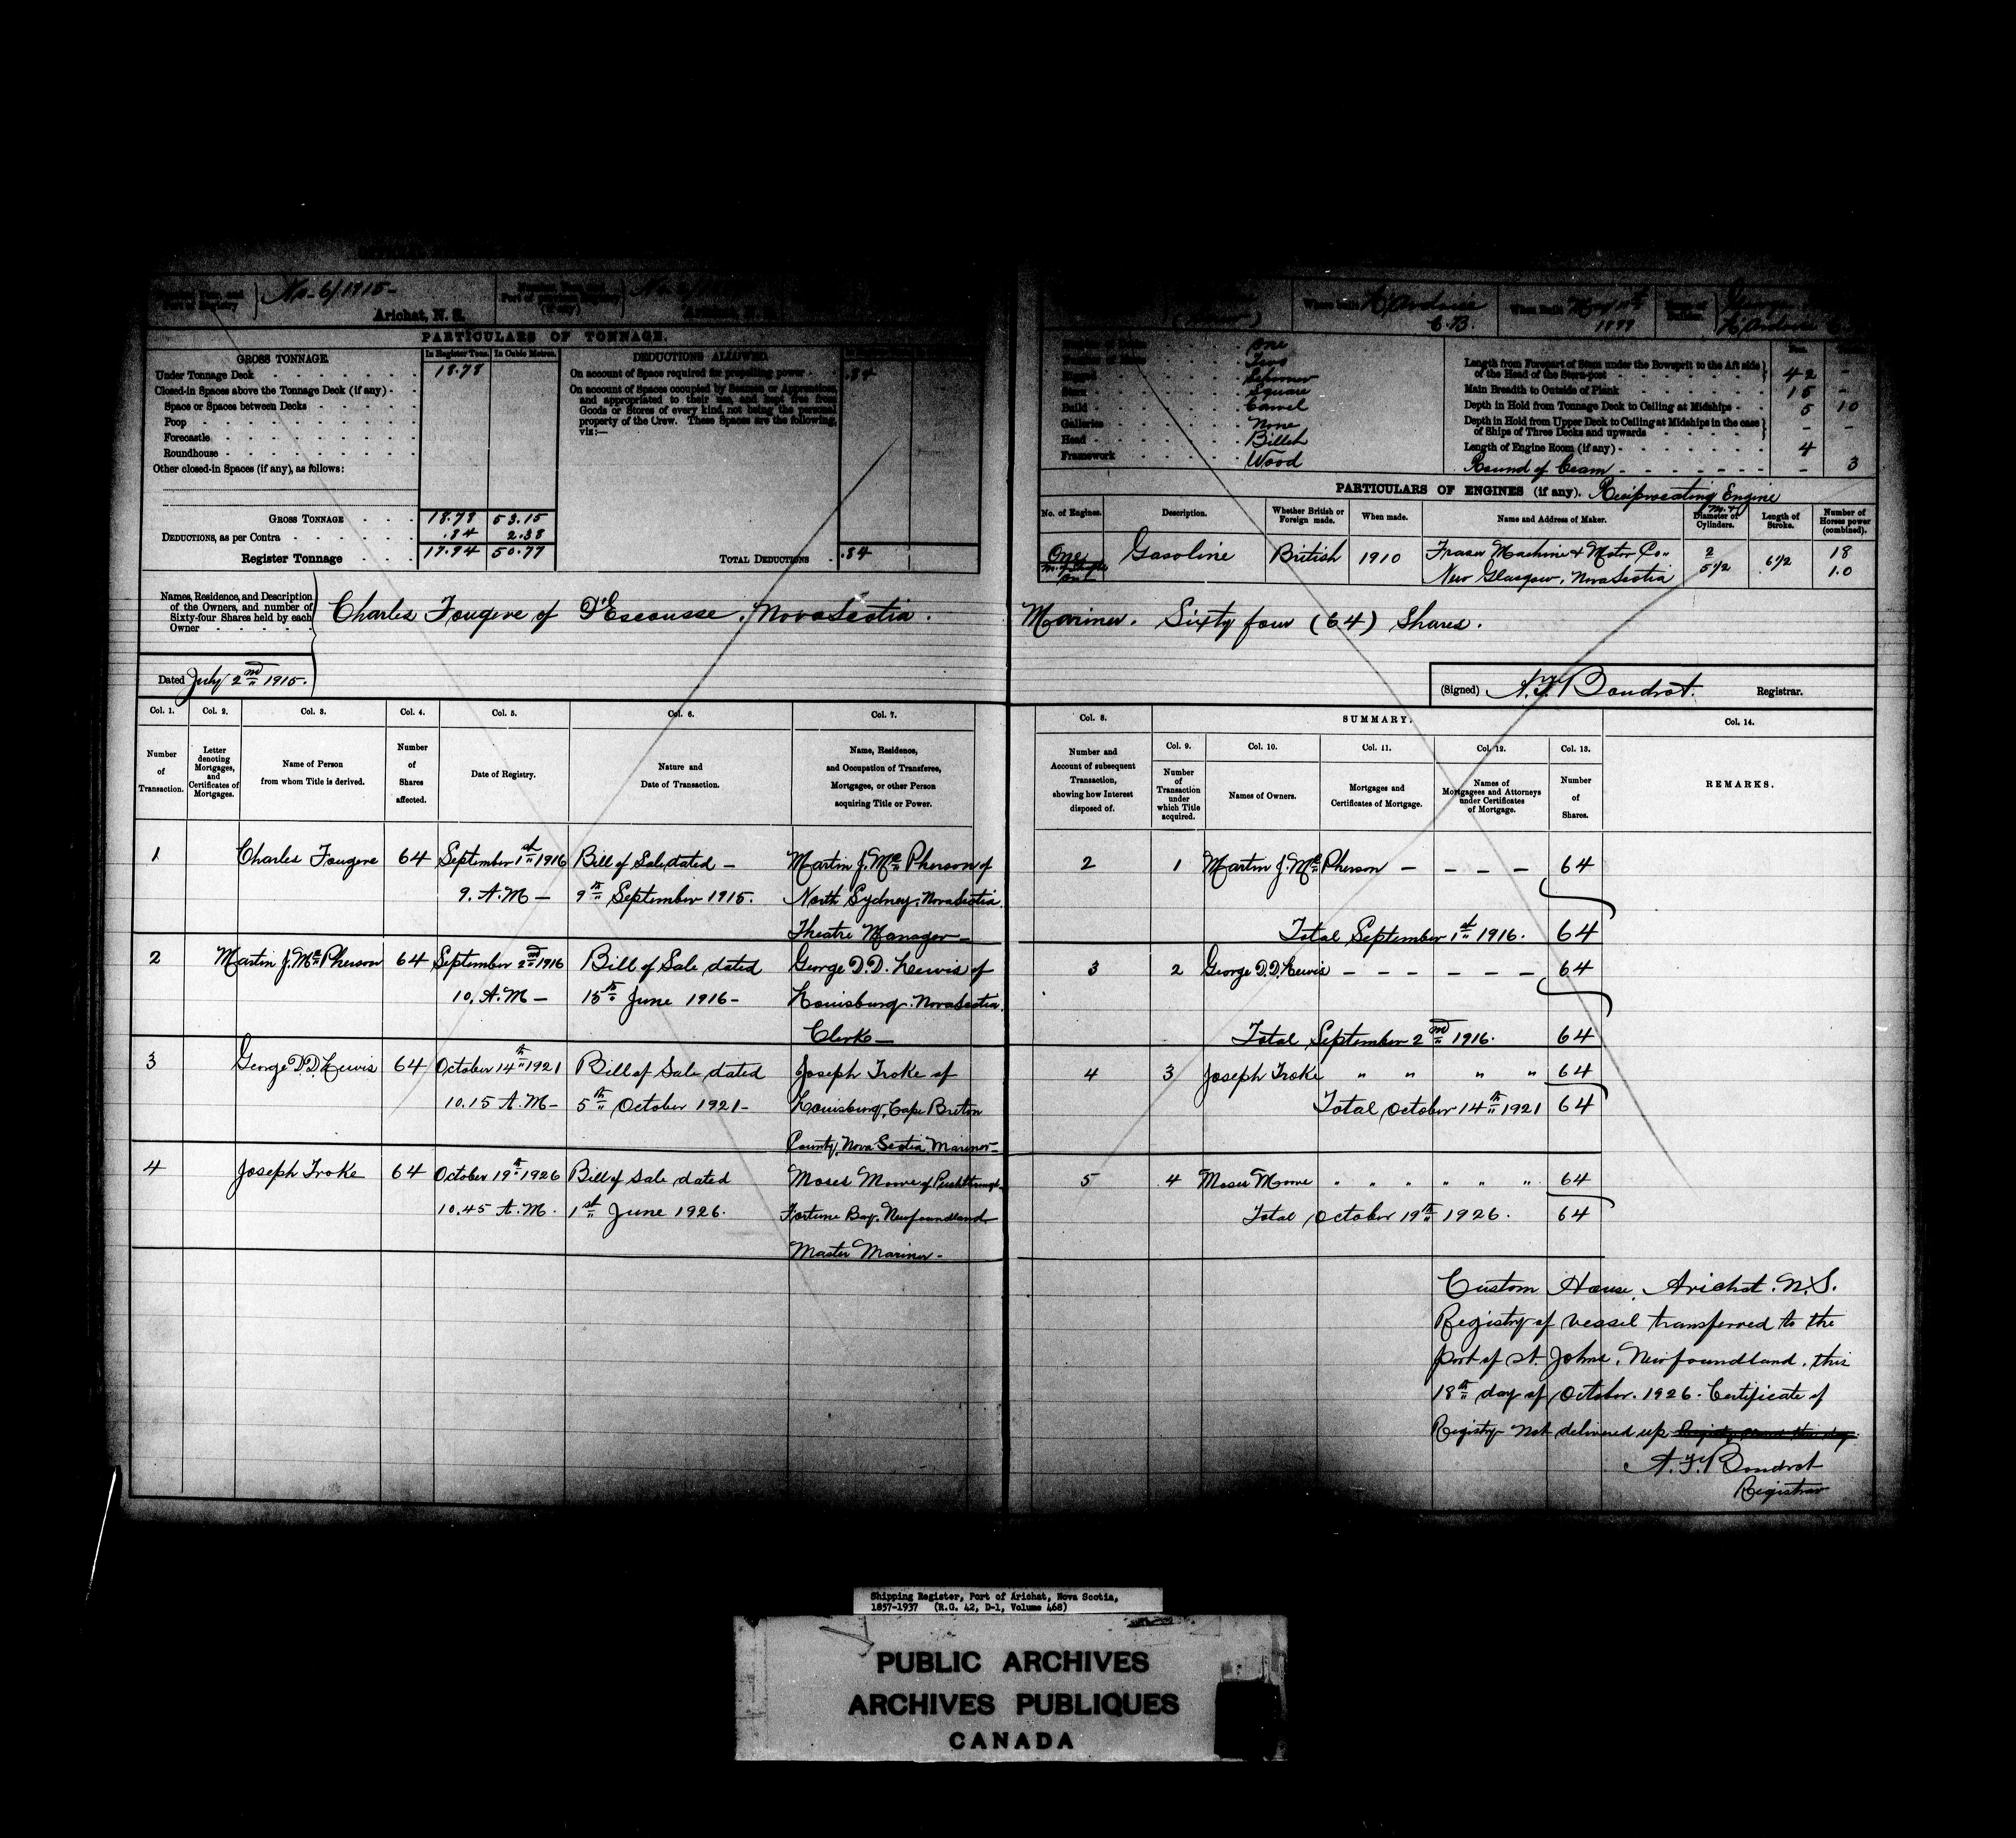 No 6/1915 -
Arichat, N. S.
PARTICULARS OF TONNAGE.
GROSS TONNAGE.
In Register Tons. In Cubic Metres.
Under Tonnage Deck 18.78
Closed-in Spaces above the Tonnage Deck (if any)
Space or Spaces between Decks
Poop
Forecastle
Roundhouse
Other closed-in Spaces (if any), as follows:
GROSS TONNAGE 18.78 53.15
DEDUCTIONS, as per Contra .84 2.38
Register Tonnage 17.94 50.77
DEDUCTIONS ALLOWED.
On account of Space required for propelling power .84
On account of Spaces occupied by Seamen or Apprentices,
and appropriated to their use, and kept free from
Goods or Stores of every kind, not being the personal
property of the Crew. These Spaces are the following,
viz:—
TOTAL DEDUCTIONS .84
When Built
One
Two
Schooner
Stern Square
Build Carvel
Galleries None
Head Billet
Framework Wood
Length from Forepart of Stem under the Bowsprit to the Aft side
of the Head of the Stern-post 42 -
Main Breadth to Outside of Plank 15 -
Depth in Hold from Tonnage Deck to Ceiling at Midships 5 10
Depth in Hold from Upper Deck to Ceiling at Midships in the case
of Ships of Three Decks and upwards - -
Length of Engine Room (if any) 4
Round of Beam - 3
PARTICULARS OF ENGINES (if any). Reciprocating Engine
No. of Engines. Description. Whether British or Foreign made. When made. Name and Address of Maker. Diameter of Cylinders. Length of Stroke. Number of Horses power (combined).
One Gasoline British 1910 Fraser Machine & Motor Co. 2 6 1/2 18
New Glasgow, Nova Scotia 5 1/2 1.0
Names, Residence, and Description
of the Owners, and number of
Sixty-four Shares held by each
Owner
Charles Fougere of D'Escousse, Nova Scotia. Mariner. Sixty four (64) Shares.
Dated July 2nd 1915.
(Signed) A. F. Boudrot. Registrar.
Col. 1. Col. 2. Col. 3. Col. 4. Col. 5. Col. 6. Col. 7.
Number of Transaction.
Letter denoting Mortgages, and Certificates of Mortgages.
Name of Person from whom Title is derived.
Number of Shares affected.
Date of Registry.
Nature and Date of Transaction.
Name, Residence, and Occupation of Transferee, Mortgages, or other Person acquiring Title or Power.
Col. 8. SUMMARY. Col. 14.
Col. 9. Col. 10. Col. 11. Col. 12. Col. 13.
Number and Account of subsequent Transaction, showing how Interest disposed of.
Number of Transaction under which Title acquired.
Names of Owners.
Mortgages and Certificates of Mortgage.
Names of Mortgagees and Attorneys under Certificates of Mortgage.
Number of Shares.
REMARKS.
1 Charles Fougere 64 September 1st 1916 Bill of Sale dated — Martin J. McPherson of
9. A.M — 9th September 1915. North Sydney, Nova Scotia.
Theatre Manager —
2 Martin J. McPherson 64 September 2nd 1916 Bill of Sale dated George D. D. Lewis of
10. A.M — 15th June 1916 - Louisburg, Nova Scotia.
Clerk —
3 George D. D. Lewis 64 October 14th 1921 Bill of Sale dated Joseph Troke of
10.15 A.M - 5th October 1921 - Louisburg, Cape Breton
County, Nova Scotia, Mariner -
4 Joseph Troke 64 October 19th 1926 Bill of Sale dated Moses Moore of Pushthrough
10.45 A.M. 1st June 1926. Fortune Bay, Newfoundland
Master Mariner -
2 1 Martin J. McPherson — — — — 64
Total September 1st 1916. 64
3 2 George D. D. Lewis — — — — — — 64
Total September 2nd 1916. 64
4 3 Joseph Troke " " " " 64
Total October 14th 1921 64
5 4 Moses Moore " " " " " " 64
Total October 19th 1926. 64
Custom House, Arichat. N.S.
Registry of vessel transferred to the
port of St. Johns, Newfoundland, this
18th day of October. 1926. Certificate of
Registry not delivered up
A. F. Boudrot
Registrar
Shipping Register, Port of Arichat, Nova Scotia,
1857-1937 (R.G. 42, D-1, Volume 468)
PUBLIC ARCHIVES
ARCHIVES PUBLIQUES
CANADA